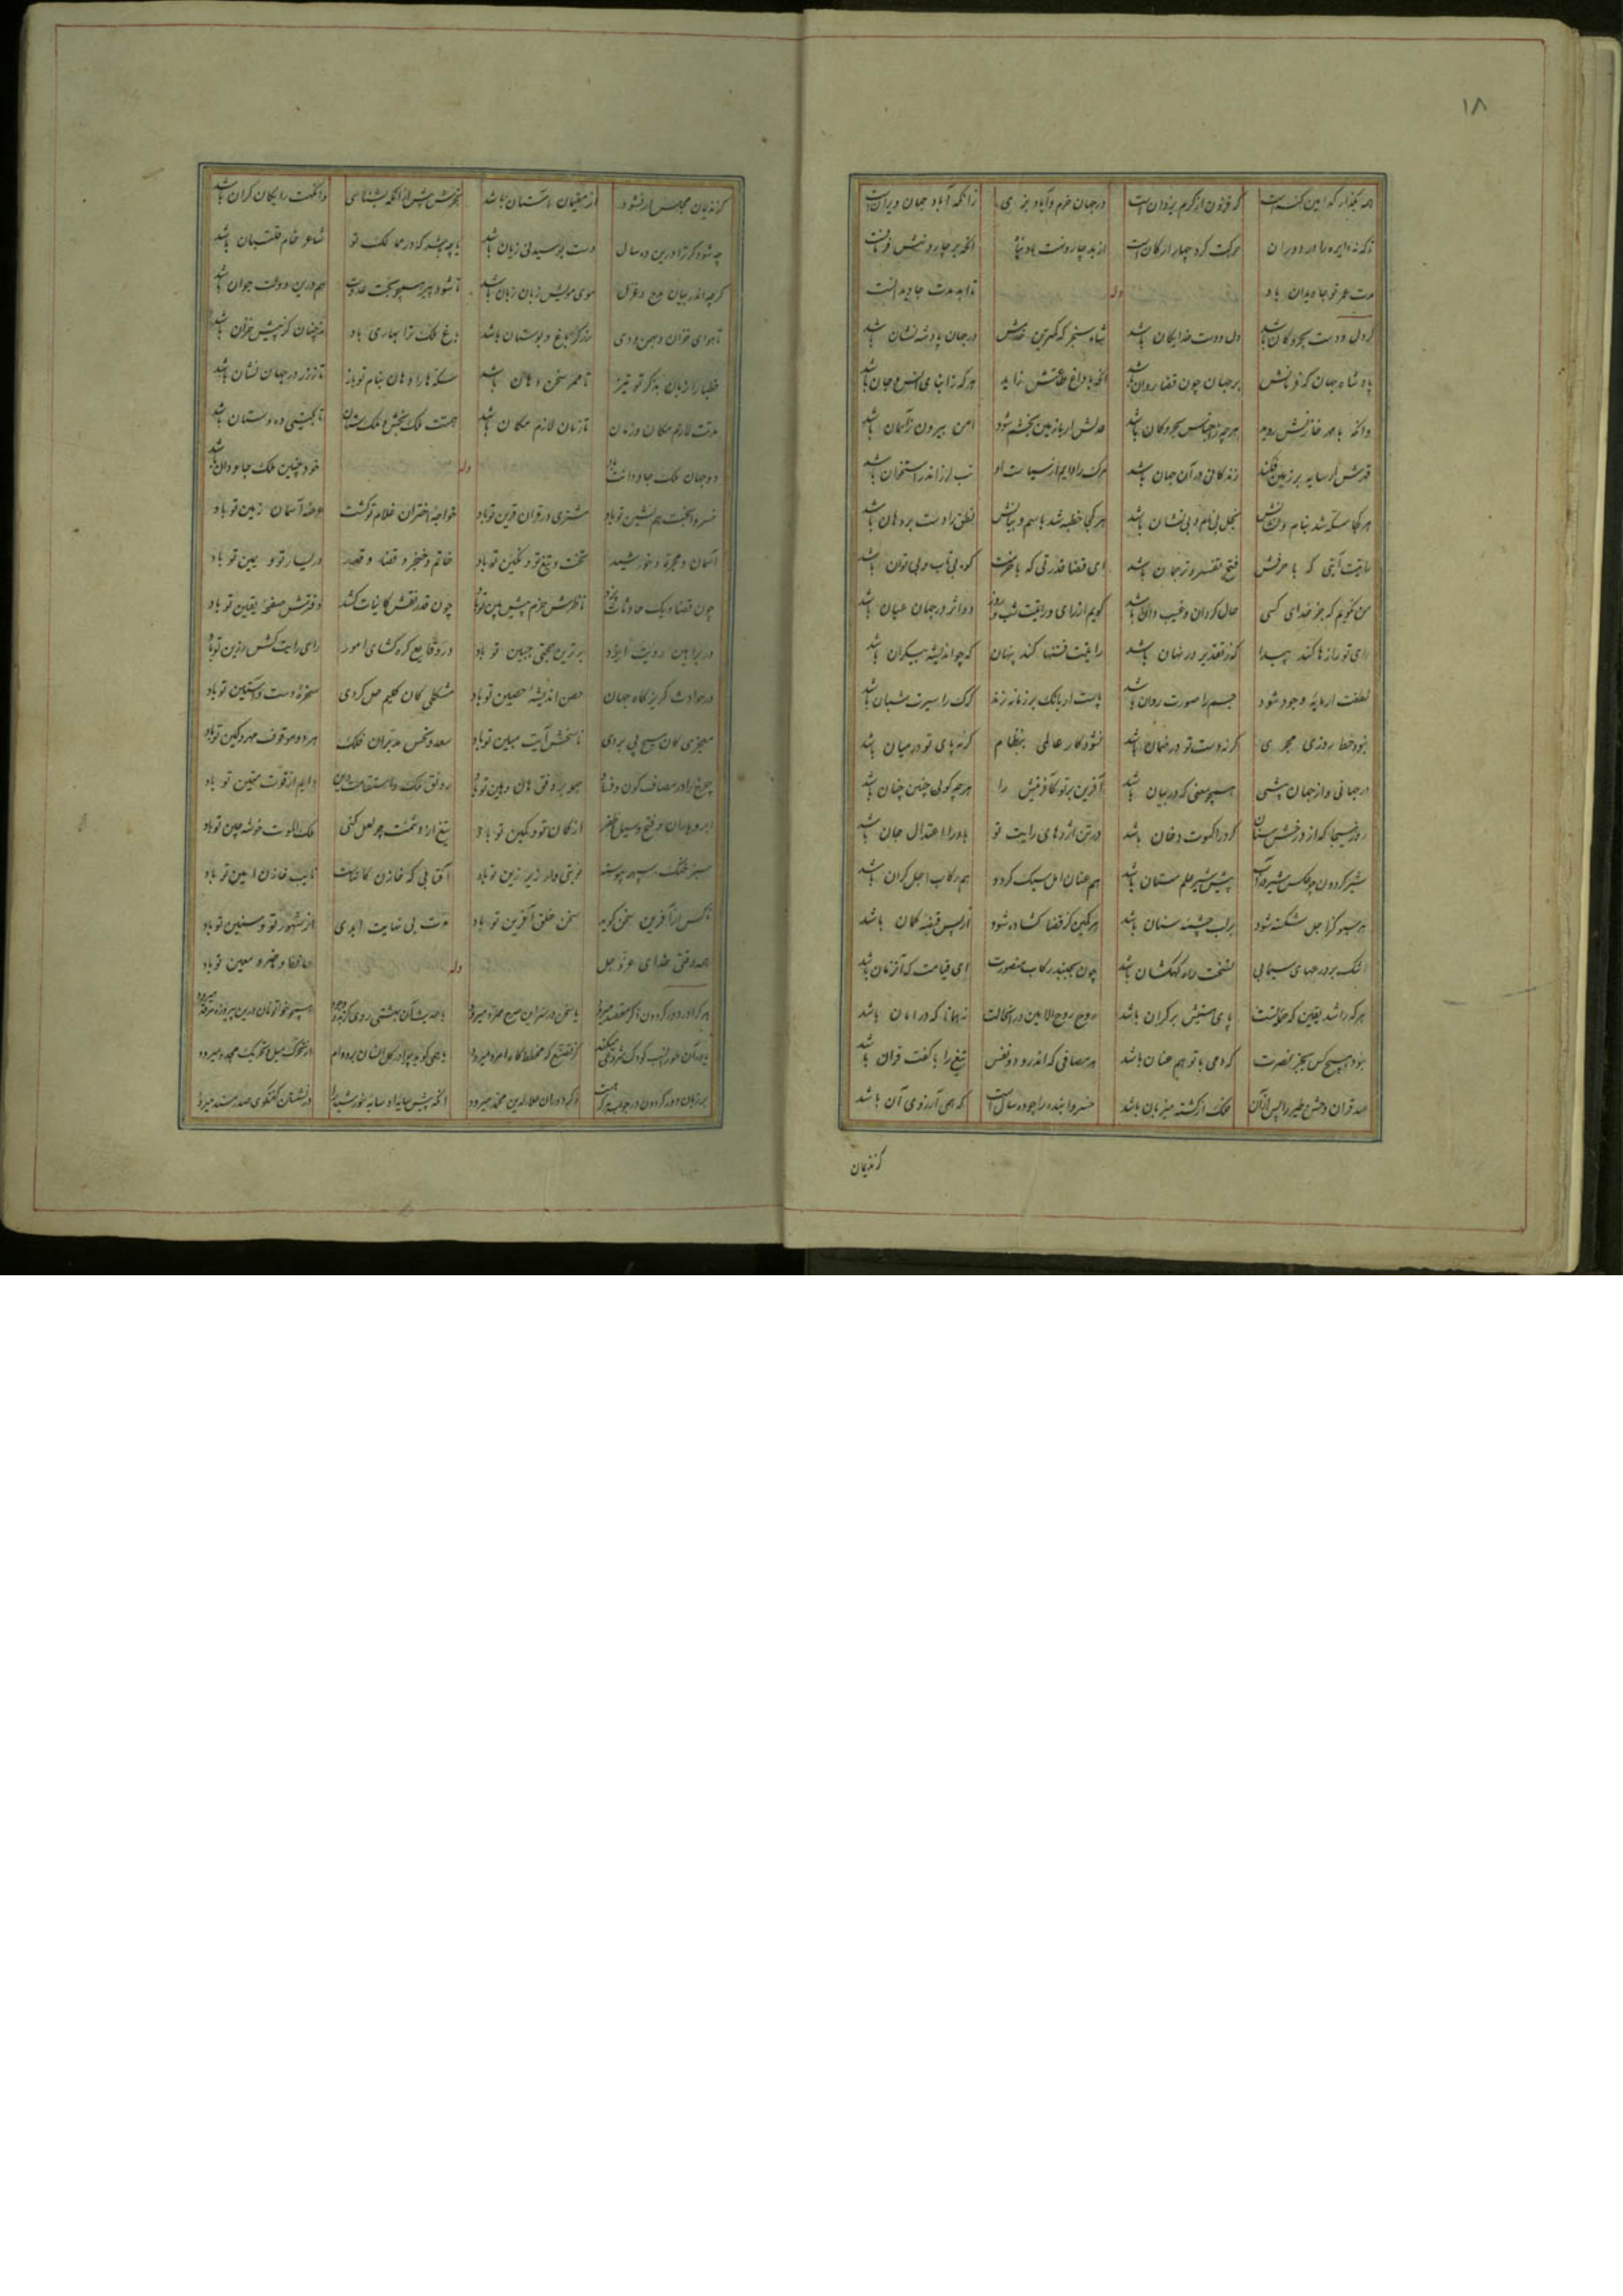 ۱۸
همه بگذار که این کنه است که فزون از کرم یزدان است در جهان خرم و آباد بزی زانکه آباد جهان ویران است
تا که نه دایره را دوران حرکت کرد چهار ارکان است از بد چار و نهت باد پناه آنکه بر چار و نهش فرمانست
مدت عمر تو جاویدان باد تا ابد مدت جاویدانست
وله
گر دل و دست بحر و کان باشد دل و دست خدایگان باشد شاه سنجر که کمترین خدمش در جهان پادشه نشان باشد
پادشاه جهان که فرمانش بر جهان چون قضا روان باشد آنکه با داغ طاعتش زاید هر که ز ابنای انس و جان باشد
وانکه با مهر خازنش روید هرچه ز اجناس بحر و کان باشد عدلش ار با زمین بخشم شود امن بیرون ز آسمان باشد
قهرش ار سایه بر زمین فکند زندگانی در آن جهان باشد مرک را دایم از سیاست او تب لرز اندر استخوان باشد
هر کجا سکه شد بنام ونشانش بخل بی نام و بی نشان باشد هر کجا خطبه شد باسم و بیانش نطق را دست بر دهان باشد
رایتت آیتی که با حرفش فتح تفسیر و ترجمان باشد ای قضا قدرتی که با حزمت کوه بی تاب و بی توان باشد
من نگویم که جز خدای کسی حال گردان و غیب دان باشد گویم از رای و رایتت شب و روز دو اثر در جهان عیان باشد
رای تو رازها کند پیدا که ز تقدیر در نهان باشد رایتت فتنها کند پنهان که چو اندیشه بیکران باشد
لطفت ار مایهٔ وجود شود جسم را صورت روان باشد باست ار بانک بر زمانه زند گرگ را سیرت شبان باشد
نبود خط روزی مجری گر نه دست تو در ضمان باشد نشود کار عالمی بنظام گر نه پای تو در میان باشد
در جهانی و از جهان پیشی همچو معنی که در بیان باشد آفرین بر تو کافرینش را هرچه گوئی چنین چنان باشد
روز هیجا که از درخش سنان گرد را کسوت دخان باشد در تن اژدهای رایت تو باد را اعتدال جان باشد
شیر گردون چو عکس شیر در آب پیش شیر علم ستان باشد هم عنان امل سبک گردد هم رکاب اجل گران باشد
هر سبو کز اجل شکسته شود بر لب چشمهٔ سنان باشد هر کمین کز قضا گشاده شود از پس قبضهٔ کمان باشد
اشک بر درعهای سیمابی نسخت راه کهکشان باشد چون بجنبد رکاب منصورت ای قیامت که آن زمان باشد
هر که راشد یقین که حملهٔ تست پای هستیش بر کران باشد روح روح الامین در آنحالت نه همانا که در امان باشد
نبود هیچ کس بجز نصرت که دمی با تو هم عنان باشد هر مصافی که اندرو دو نفس تیغ را با کفت قران باشد
صد قران وحش و طیر را پس از آن فلک از کشته میزبان باشد خسروا بنده را چو ده سال است که همی آرزوی آن باشد
کز ندیمان
کز ندیمان مجلس ار نشود از مقیمان آستان باشد بخرش پیش از انکه بشناسی وانگهت رایگان گران باشد
چه شود گر ترا درین ده سال دست بوسیدنی زیان باشد یا چه باشد که در ممالک تو شاعر خام قلتبان باشد
گرچه اندر بیان مدح و غزل موی مویش زبان زبان باشد تا شود پیر همچو بخت عدوت هم درین دولت جوان باشد
تا هوای خزان و بهمن و دی زرگر باغ و بوستان باشد باغ ملک ترا بهاری باد نه چنان کز پیش خزان باشد
خطبها را زبان بذکر تو تیز تا ممر سخن دهان باشد سکه ها را دهان بنام تو باز تا ز زر در جهان نشان باشد
مدتت لازم مکان و زمان تا زمان لازم مکان باشد همتت ملک بخش و ملک ستان تا بگیتی ده و ستان باشد
در جهان ملک جاودانت باد خود چنین ملک جاودان باشد
وله
خسروا بخت همنشین تو باد مشتری در قران قرین تو باد خواجهٔ اختران غلام تو گشت عرصهٔ آسمان زمین تو باد
آسمان و مجره و خورشید تخت و تیغ تو و نگین تو باد خاتم و خنجر و قضا و قدر در یسار تو و یمین تو باد
چون قضا و یک حادثات کند ناظرش حزم پیش بین تو باد چون قدر نقش کاینات کشد دفترش صفحهٔ یقین تو باد
در براهین رؤیت ایزد برترین حجتی جبین تو باد در وقایع گره گشای امور رای رایت کش رزین تو باد
در حوادث گریزگاه جهان حصن اندیشهٔ حصین تو باد مشکلی کان کلیم حل کردی سخرهٔ دست و آستین تو باد
معجزی کان مسیح پی بردی ناسخش آیت مبین تو باد سعد و نحس مدبران فلک هر دو موقوف مهر و کین تو باد
چرخ را در مصاف کون و فساد همه بر وفق هان و هین تو باد رونق ملک و استقامت دین دایم از قوت متین تو باد
ابر و باران فتح و سیل ظفر از کمان تو و کمین تو باد تیغ ارزو ثمنت چو لعل کنی ملک الموت خوشه چین تو باد
سبز خنگ سپهر پیوسته نوبتی وار زیر زین تو باد آفتابی که خازن کانهاست نایب خازن امین تو باد
تا کس از آفرین سخن گوید سخن خلق آفرین تو باد مدت بی نهایت ابدی از شهور تو و سنین تو باد
همه وقتی خدای عز و جل حافظ و ناصر و معین تو باد
وله